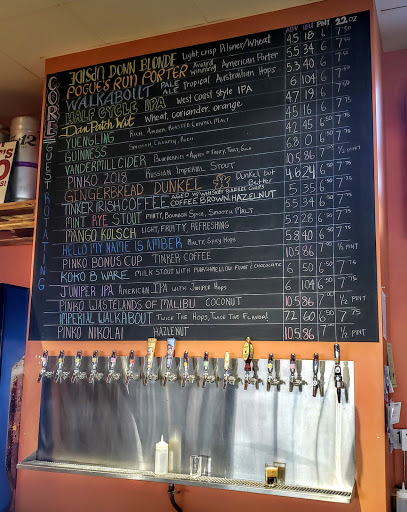 ABV IBU PINT 22 OZ
CORE
UPSIDE DOWN BLONDE Light, crisp Pilsner/Wheat 4.5 18 6 7⁵⁰
POGUE'S RUN PORTER Award Winning American Porter 5.5 34 6 7⁵⁰
WALKABOUT PALE ALE Tropical Australian Hops 5.3 40 6
HALF CYCLE IPA West Coast Style IPA 6 104 6
Dan Patch Wit Wheat, coriander, orange 4.7 19 6
GUEST
YUENGLING Rich, Amber, Roasted Caramel Malt 4.5 16 6
GUINNESS Smooth, Creamy, Rich
VANDERMILL CIDER Blueberries + Apples = Fruity, Tart, Gold
ROTATING
PINKO 2018 Russian Imperial Stout 10.5 86
GINGERBREAD DUNKEL Dunkel but Better 4.6 24 6 7⁵⁰
TINKER IRISH COFFEE AGED W/ WHISKEY BARREL CHIPS COFFEE BROWN, HAZELNUT
MINT RYE STOUT MINTY, BOURBON SPICE, SMOOTH MALT 5.5 34
MANGO KOLSCH LIGHT, FRUITY, REFRESHING 5.2 28 6⁵⁰ 7⁷⁵
HELLO MY NAME IS AMBER MALTY, SPICY HOPS 5.8 40 6⁵⁰ 7⁷⁵
PINKO BONUS CUP TINKER COFFEE 10.5 86 7 ½ PINT
KOKO B WARE MILK STOUT WITH MARSHMELLOW FLUFF & CHOCOLATE 6 50 6⁵⁰ 7⁷⁵
JUNIPER IPA AMERICAN IPA WITH JUNIPER HOPS 6 104 6⁵⁰ 7⁷⁵
PINKO WASTELANDS OF MALIBU COCONUT 10.5 86 7 ½ PINT
IMPERIAL WALKABOUT TWICE THE HOPS, TWICE THE FLAVOR! 7.2 60 6⁵⁰ 7⁷⁵
PINKO NIKOLAI HAZELNUT 10.5 86 7 ½ PINT